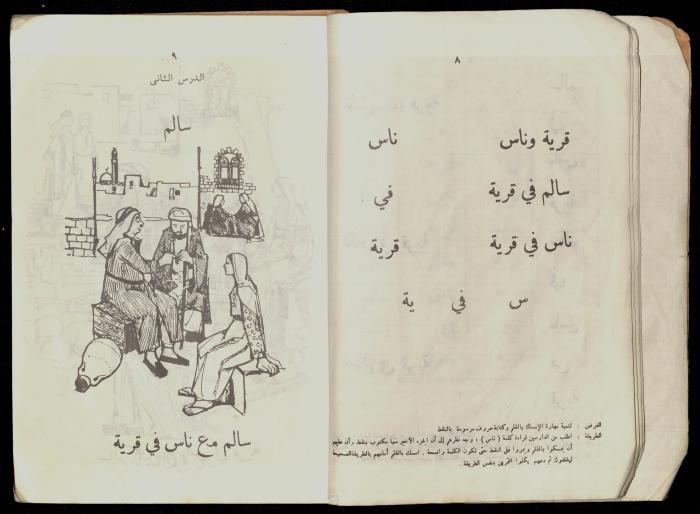 ٨
قرية وناس ناس
سالم في قرية في
ناس في قرية قرية
س في ية
الغرض : تنمية مهارة الإمساك بالقلم وكتابة حروف مرسومة بالنقط
الطريقة : اطلب من الدارسين قراءة كلمة ( ناس ) ، وجه نظرهم إلى أن الجزء الأخير منها مكتوب بنقط وأن عليهم
أن يمسكوا بالقلم ويمروا على النقط حتى تكون الكلمة واضحة . امسك بالقلم أمامهم بالطريقة الصحيحة
ليقلدوك ثم دعهم يكملوا التمرين بنفس الطريقة .
٩
الدرس الثانى
سالم
سالم مع ناس في قرية